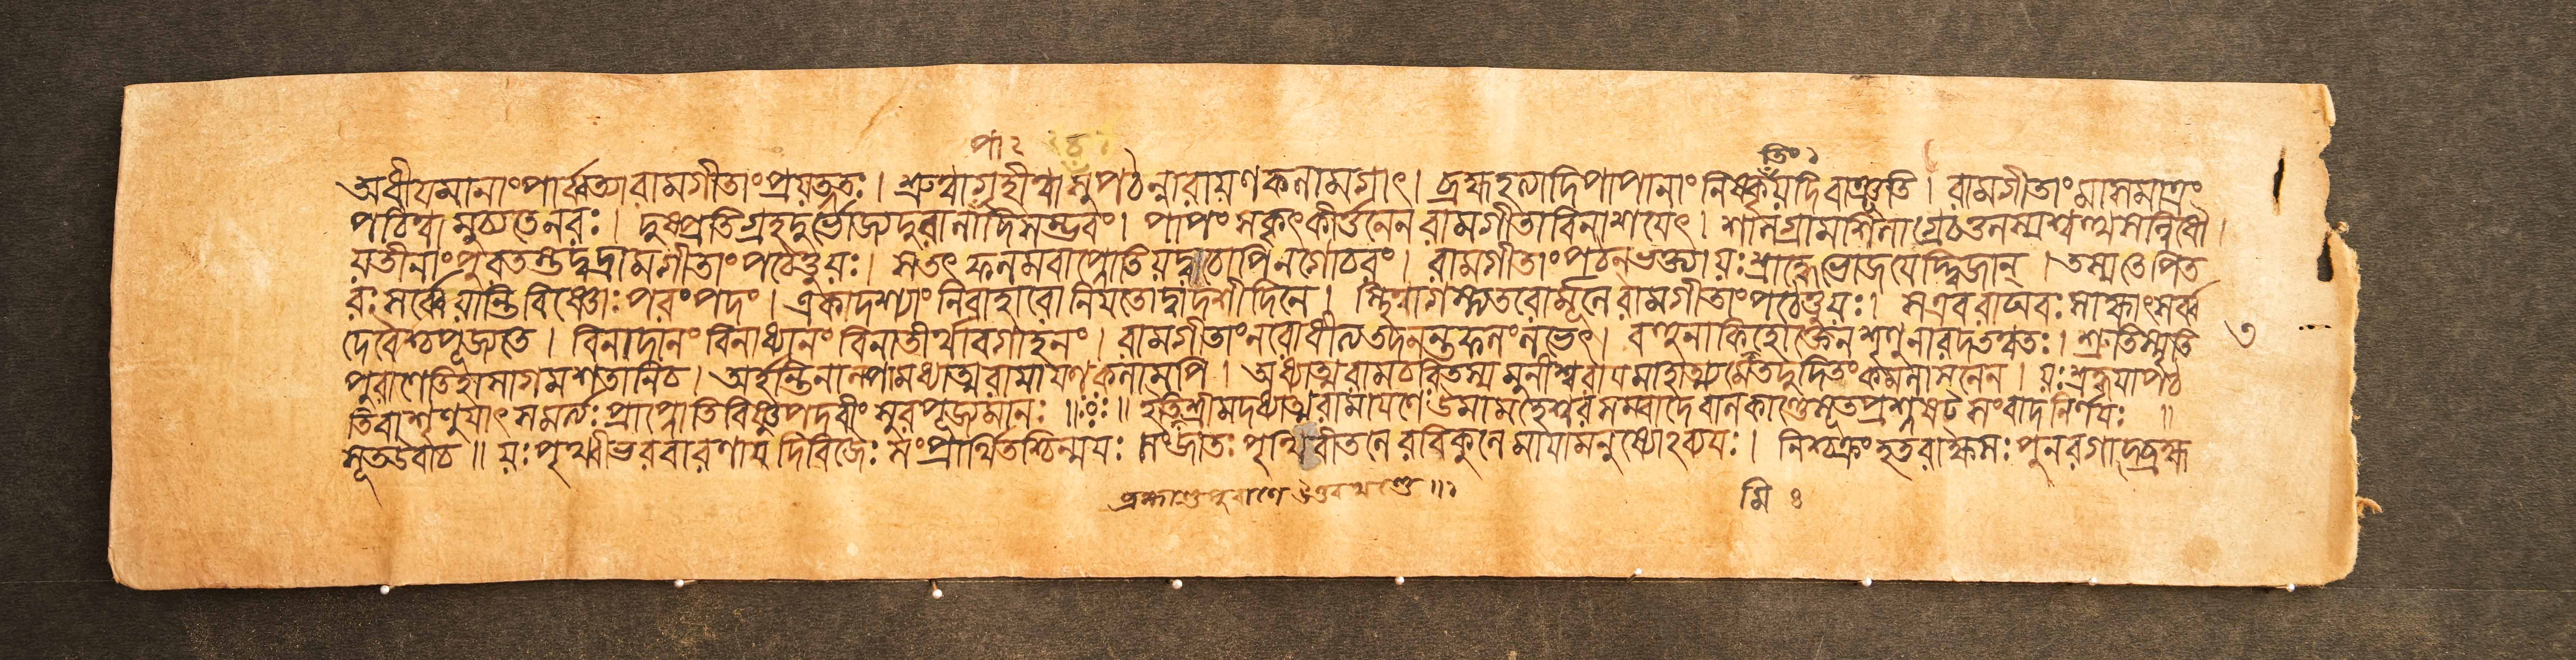 পা২
তিং২
অধীয়মানাংপার্ব্বত্যারামগীতাংপ্রযত্নতঃ। শ্রুত্বাগৃহীত্বাসুপঠন্নারায়ণকলামগাৎ। ব্রহ্মহত্যাদিপাপানাংনিষ্কৃযদিবাঞ্ছতি। রামগীতাংমাসমাত্রং
পঠিত্বামুচ্যতেনরঃ। দুষ্প্রতিগ্রহদুর্ভোজ্যদুরালাদিসম্ভবং। পাপংসকৃৎকীর্ত্তনেনরামগীতাবিনাশয়েৎ। শালগ্রামশিলাগ্রেচতুলস্যশ্বত্থসন্নিধৌ।
যতীনাংপুরতস্তদ্বদ্রামগীতাংপঠেত্তুযঃ। সতৎফলমবাপ্নোতিযদ্বাচোপিনগোচরং। রামগীতাংপঠনভক্ত্যাযঃশ্রাদ্ধেভোজয়েদ্দ্বিজান্। তস্যতেপিত
রঃসর্ব্বেযান্তিবিষ্ণোঃপরংপদং। একাদশ্যাংনিরাহারোনিয়তোদ্বাদশীদিনে। স্থিত্বাগস্ত্যতরোর্মূলেরামগীতাংপঠেত্তুযঃ। সএবরাঘবঃসাক্ষাৎসর্ব্ব
দেবৈশ্চপূজ্যতে। বিনাদানংবিনাধ্যানংবিনাতীর্থাবগাহনং। রামগীতাংনরোধীত্যতদনন্তফলংলভেৎ। বহুনাকিংহোক্তেনশৃণুনারদতত্ত্বতঃ। শ্রুতিস্মৃতি
৩
পুরাণেতিহাসাগমশতানিচ। অর্হন্তিনাল্পামধ্যাত্মরামায়ণকলামপি। অধ্যাত্মরামচরিতস্যমুনীশ্বরায়মাহাত্ম্যমেতদুদিতংকমলাসনেন। যঃশ্রদ্ধয়াপঠ
তিবাশৃণুয়াৎসমর্ত্যঃপ্রাপ্নোতিবিষ্ণুপদবীংসুরপূজ্যমানঃ॥ ইতিশ্রীমদধ্যাত্মরামায়ণেউমামহেশ্বরসম্বাদেবালকাণ্ডেসূতপ্রশ্নসংবাদনির্ণয়ঃ ॥
সূতউবাচ॥ যঃপৃথ্বীভরবারণায়দিবিজৈঃসংপ্রার্থিতশ্চিন্ময়ঃসংজাতঃপৃথিবীতলেরবিকুলেমায়ামনুষ্যোঽব্যয়ঃ। নিশ্চক্রংহতরাক্ষসঃপুনরগাদ্ব্রহ্ম
ব্রহ্মাণ্ডপুরাণেউত্তরখণ্ডে॥২
মি ৪